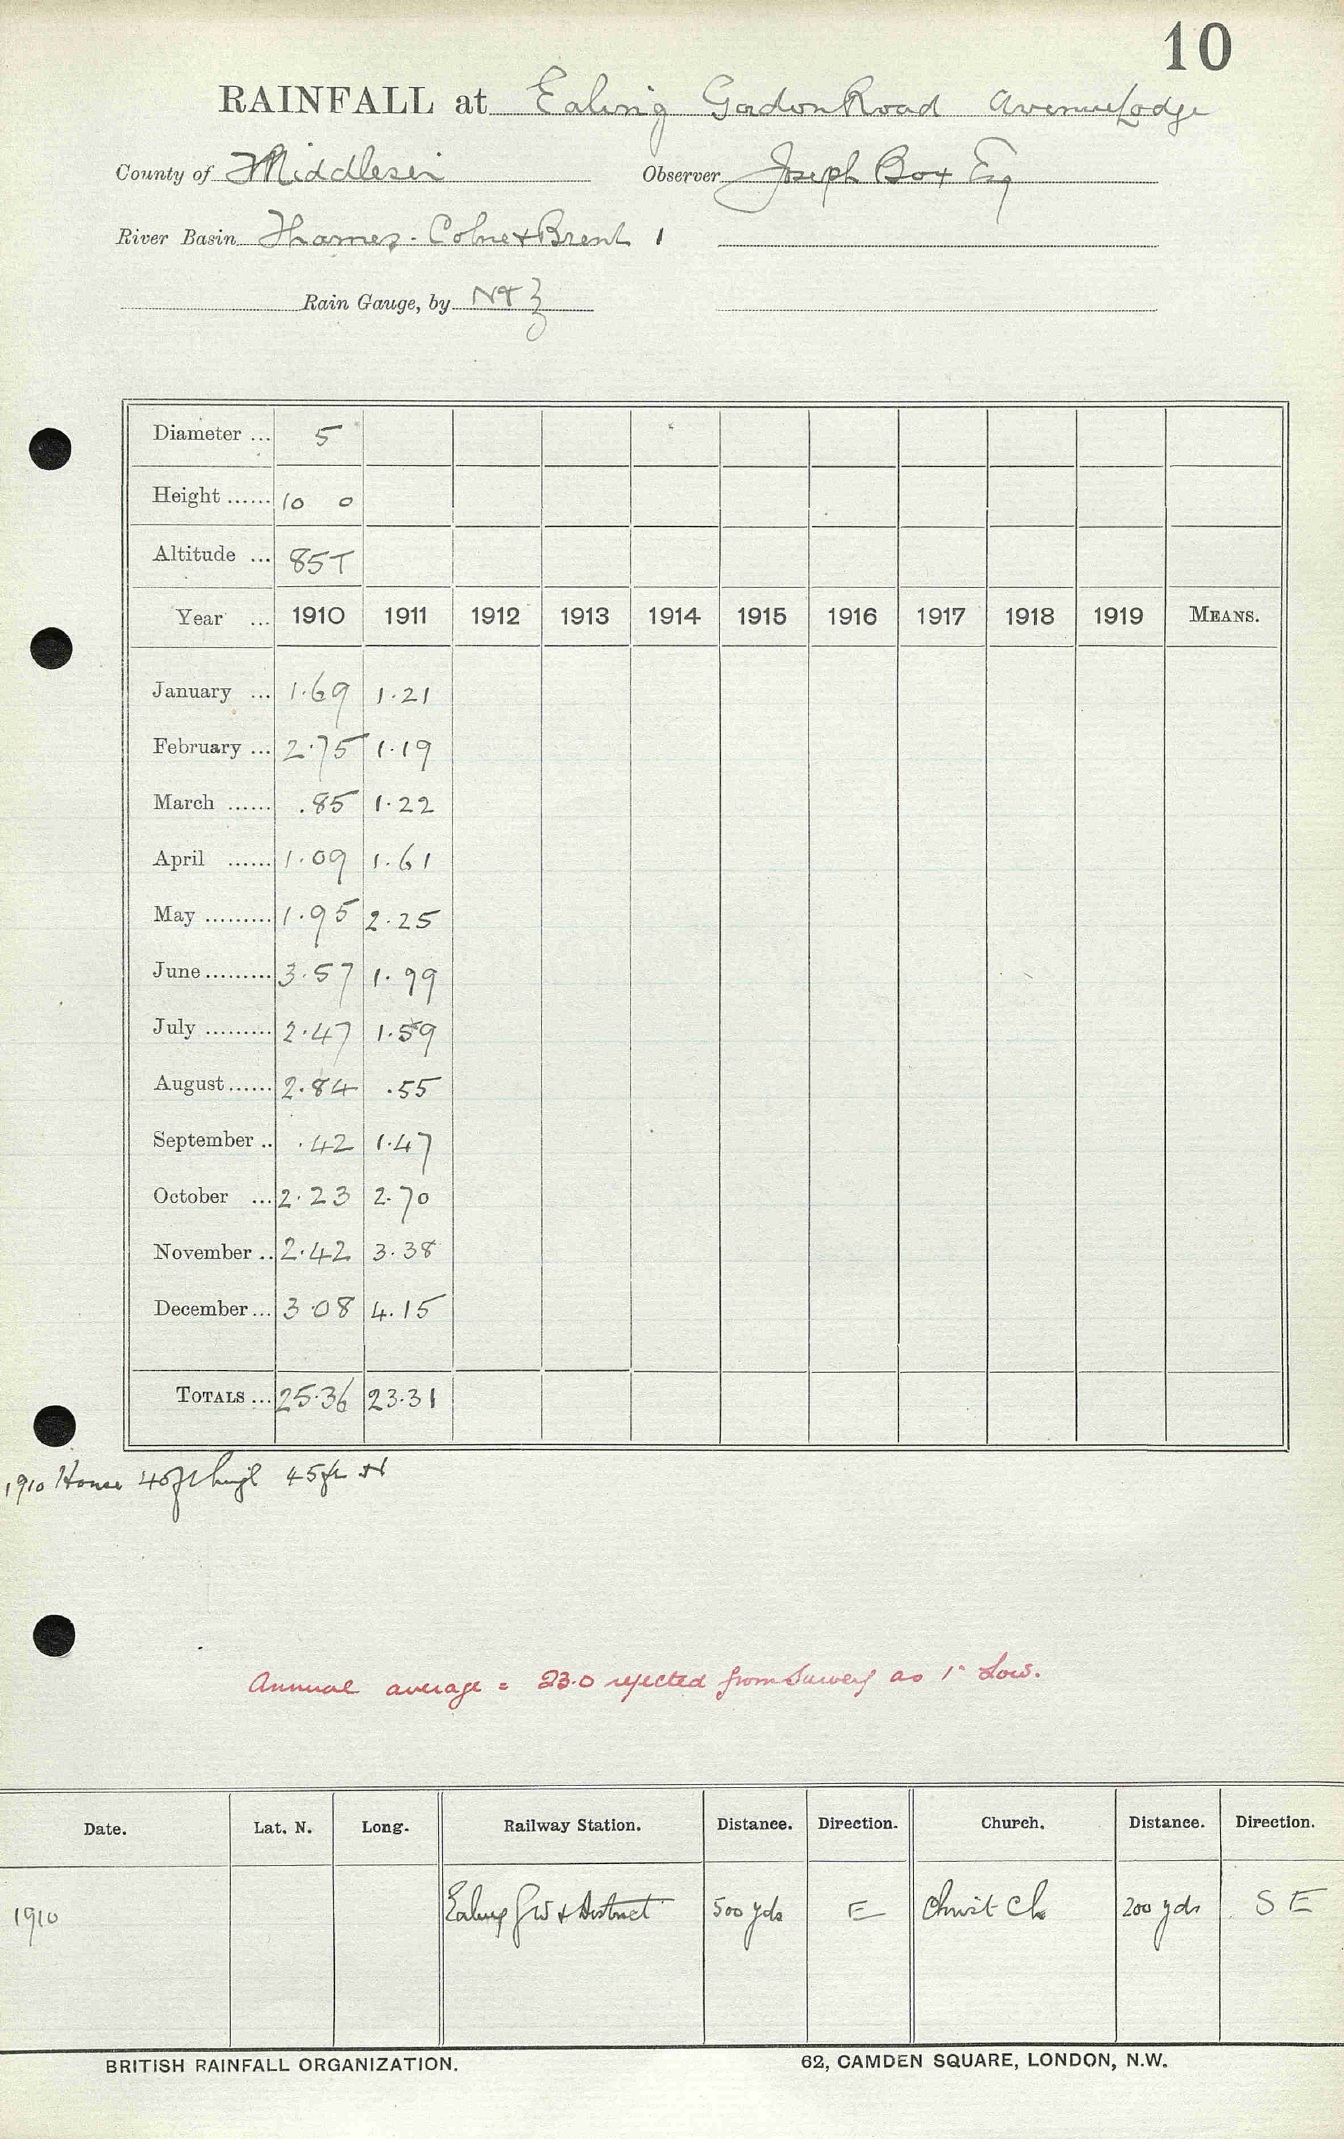 10
RAINFALL at Ealing Gordon Road Avenue Lodge
County of Middlesex Observer Joseph Box Esq
River Basin Thames - Colne & Brent 1
Rain Gauge, by N & Z
Diameter ... 5
Height ...... 10 0
Altitude ... 85T
Year ... 1910 1911 1912 1913 1914 1915 1916 1917 1918 1919 MEANS.
January ... 1.69 1.21
February ... 2.75 1.19
March ...... .85 1.22
April ...... 1.09 1.61
May ......... 1.95 2.25
June ......... 3.57 1.99
July ......... 2.47 1.59
August ...... 2.84 .55
September .. .42 1.47
October ... 2.23 2.70
November .. 2.42 3.38
December ... 3.08 4.15
TOTALS ... 25.36 23.31
1910 House 40ft high 45ft
Annual average = 23.0 rejected from Survey as 1" low.
Date. Lat. N. Long. Railway Station. Distance. Direction. Church. Distance. Direction.
1910 Ealing GW & District 500 yds E Christ Ch 200 yds S E
BRITISH RAINFALL ORGANIZATION. 62, CAMDEN SQUARE, LONDON, N.W.